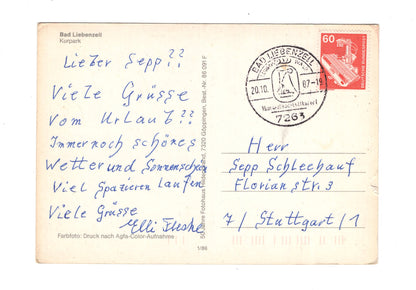 Bad Liebenzell
Kurpark
Lieber Sepp!!
Viele Grüsse
vom Urlaub!!
Immer noch schönes
Wetter und Sonnenschein
Viel Spazieren laufen
Viele Grüsse
Elli
Farbfoto: Druck nach Agfa-Color-Aufnahme
1/86
50 Jahre Fotohaus 7320 Göppingen, Best.-Nr. 86 091 F
BAD LIEBENZELL
20.10. 87-18
7263
60
DEUTSCHE BUNDESPOST
Herr
Sepp Schlechauf
Florianstr. 3
7/ Stuttgart/1